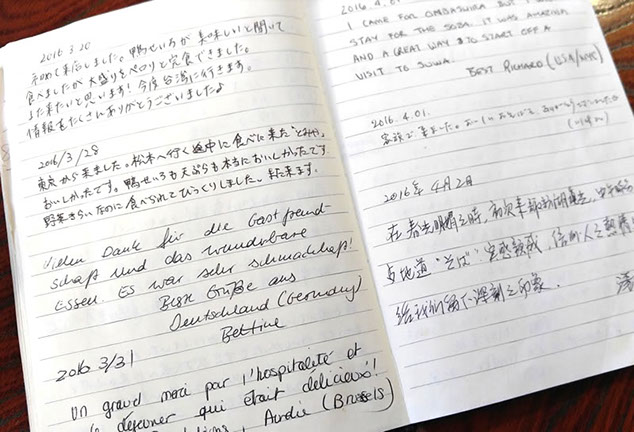 2016.3.20
初めて来店しました。鴨せいろが美味しいと聞いて
食べましたが大盛りをペロリと完食できました。
また来たいと思います!今度台湾に行きます。
情報をたくさんありがとうございました♪
2016/3/28
東京から来ました。松本へ行く途中に食べに来た
おいしかったです。鴨せいろも天ぷらも本当においしかったです
野菜きらいなのに食べられてびっくりしました。また来ます。
Vielen Dank für die Gastfreund-
schaft und das wunderbare
Essen. Es war sehr schmackhaft!
Beste Grüße aus
Deutschland (Germany)
Bettine
2016 3/31
Un grand merci par l'hospitalité et
déjeuner qui était délicieux!
Aurélie (Brussels)
2016.4.01
I CAME FOR ONBASHIRA BUT I
STAY FOR THE SOBA. IT WAS AMAZING
AND A GREAT WAY TO START OFF A
VISIT TO SUWA.
BEST RICHARD (USA/NYC)
2016.4.01.
家族で来ました。
2016年4月2日
在春光明媚之時,初次来諏訪湖
与地道"そば"
给我们留下深刻之印象.